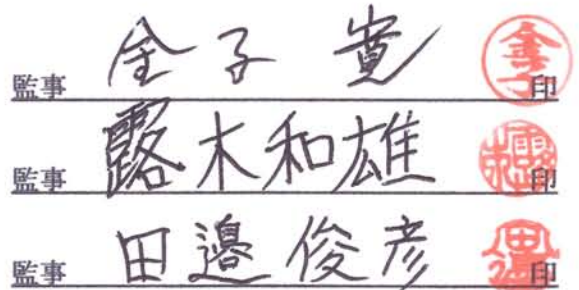 監事 金子 寛 印
監事 露木和雄 印
監事 田邉俊彦 印